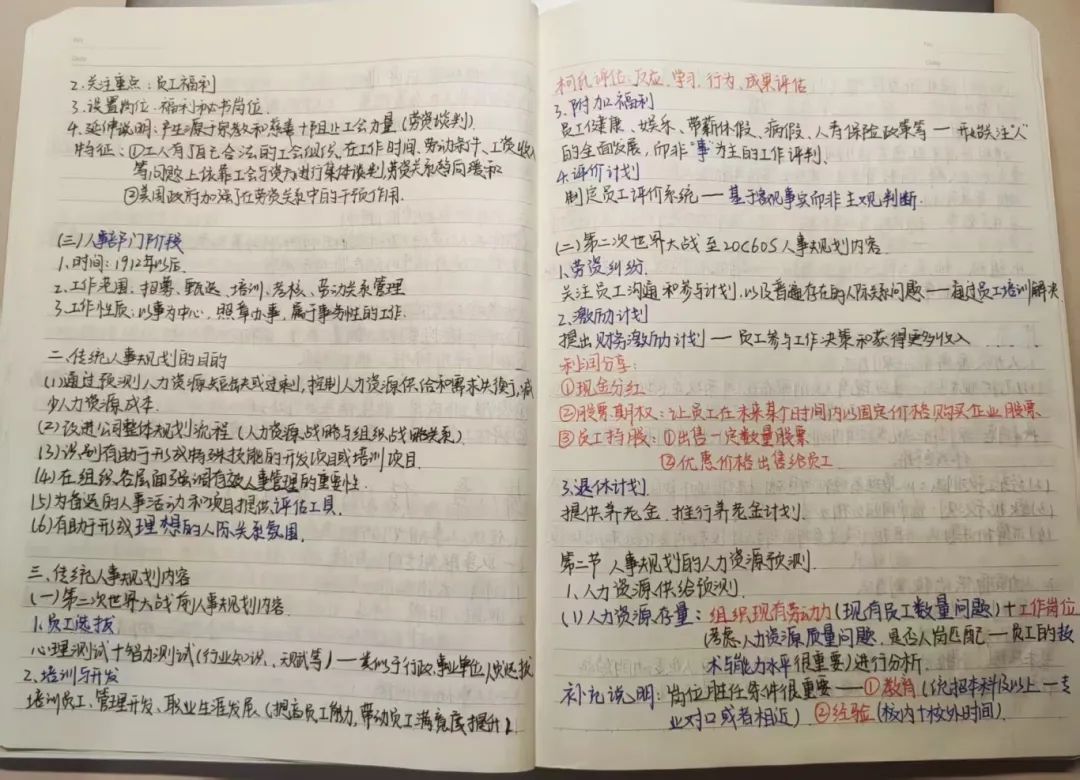 2.关注重点：员工福利
3.设置岗位：福利秘书岗位.
4.延伸说明：产生源于宗教和慈善+阻止工会力量(劳资谈判)
特征：①工人有了自己合法的工会组织,在工作时间、劳动条件、工资收入
等问题上依靠工会与资方进行集体谈判,劳资关系趋向缓和
②美国政府加强了在劳资关系中的干预作用.
(三)人事部门阶段
1.时间：1912年以后.
2.工作范围：招募、甄选、培训、考核、劳动关系管理
3.工作性质：以事为中心，照章办事，属于事务性的工作.
二、传统人事规划的目的
(1)通过预测人力资源短缺或过剩，控制人力资源供给和需求失衡，减
少人力资源成本.
(2)改进公司整体规划流程(人力资源战略与组织战略关系)
(3)识别有助于形成特殊技能的开发项目或培训项目.
(4)在组织各层面强调有效人事管理的重要性.
(5)为备选的人事活动和项目提供评估工具.
(6)有助于形成理想的人际关系氛围.
三、传统人事规划内容
(一)第二次世界大战前人事规划内容.
1.员工选拔
心理测试+智力测试(行业知识、天赋等)—类似于行政、事业单位人员选拔
2.培训与开发
培训员工、管理开发、职业生涯发展(提高员工能力,带动员工满意度提升)
柯氏评估：反应、学习、行为、成果评估
3.附加福利
员工健康、娱乐、带薪休假、病假、人寿保险政策等—开始关注"人"
的全面发展，而非"事"为主的工作评判.
4.评价计划
制定员工评价系统—基于客观事实而非主观判断.
(二)第二次世界大战至20C60S人事规划内容.
1.劳资纠纷.
关注员工沟通和参与计划，以及普遍存在的人际关系问题—通过员工培训解决.
2.激励计划
提出财务激励计划—员工参与工作决策和获得更多收入......
利润分享：
①现金分红
②股票期权：让员工在未来某个时间内以固定价格购买企业股票.
③员工持股：①出售一定数量股票
②优惠价格出售给员工
3.退休计划
提供养老金、推行养老金计划.
第二节 人事规划的人力资源预测.
1.人力资源供给预测.
(1)人力资源存量：组织现有劳动力(现有员工数量问题)+工作岗位
(考虑人力资源质量问题、是否人岗匹配—员工的技
术与能力水平很重要)进行分析.
补充说明：岗位胜任条件很重要—①教育(统招本科及以上—专
业对口或者相近) ②经验(校内+校外时间).